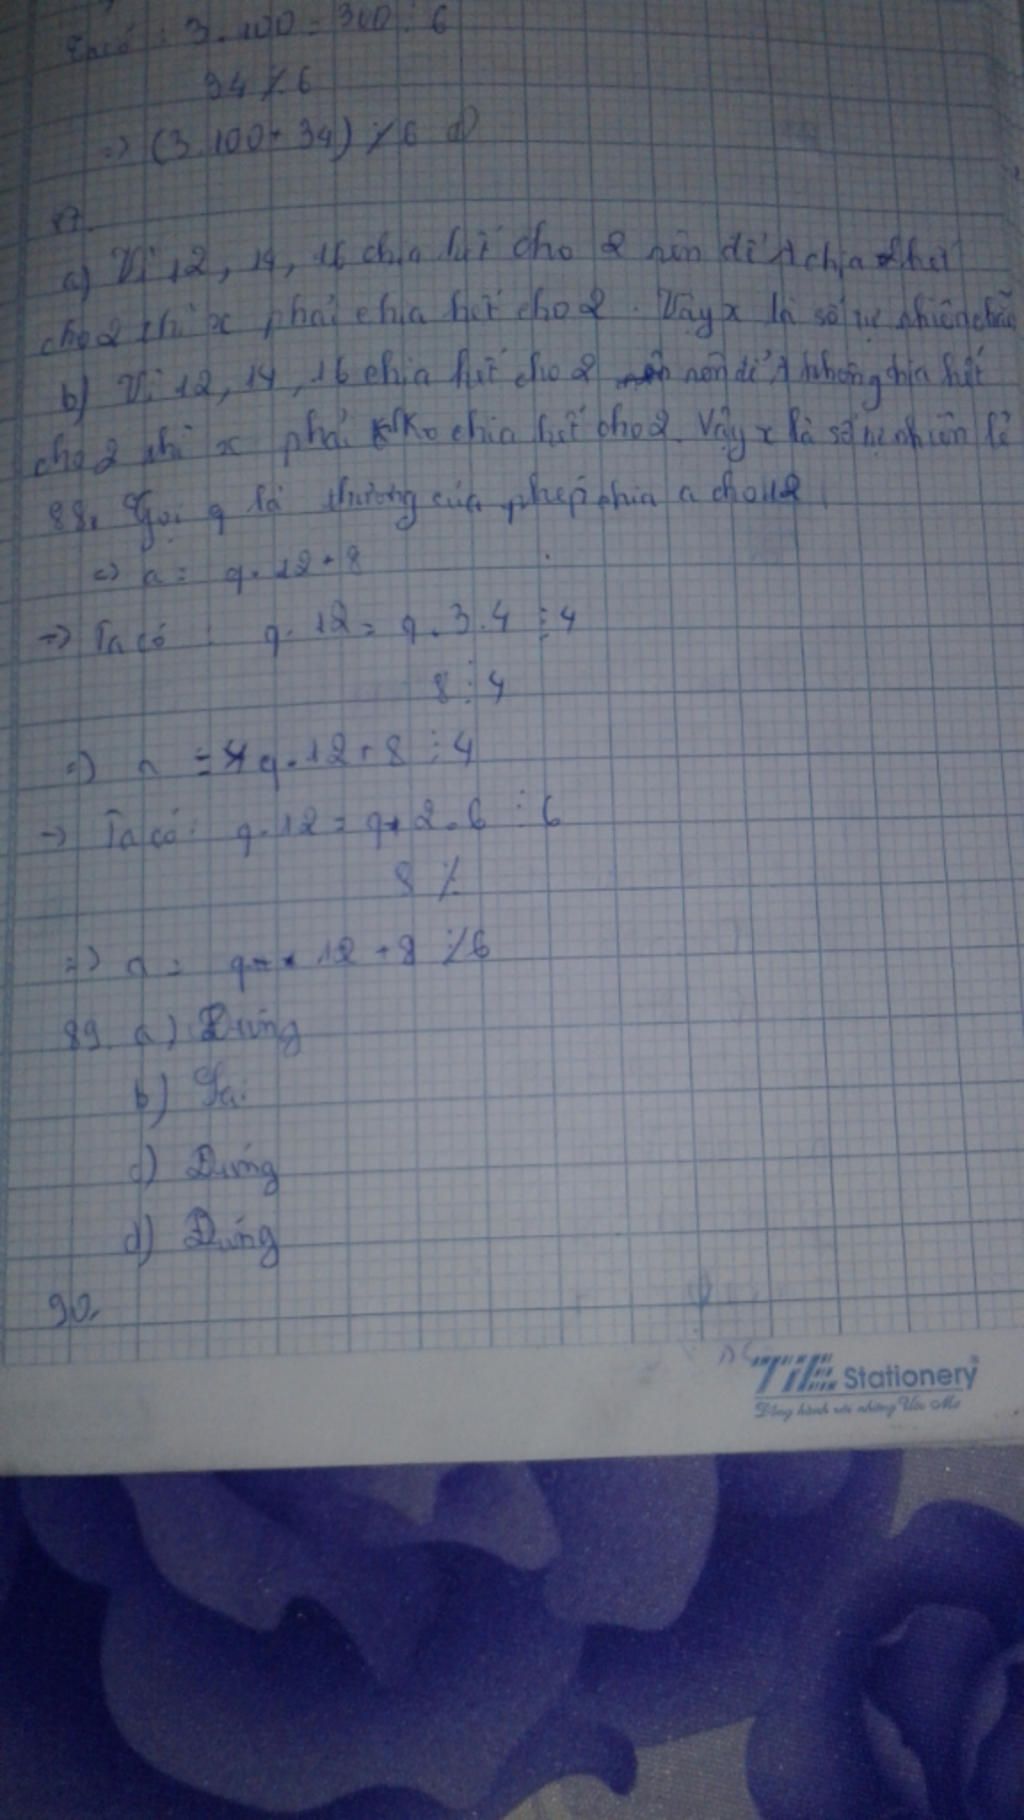 Ta có : 3.100 = 300 ⋮ 6
34 ⋮̸ 6
=> (3.100+34) ⋮̸ 6
a) Vì 12, 14, 16 chia hết cho 2 nên để A chia hết
cho 2 thì x phải chia hết cho 2. Vậy x là số tự nhiên chẵn
b) Vì 12, 14, 16 chia hết cho 2 nên để A không chia hết
cho 2 thì x phải ko chia hết cho 2. Vậy x là số tự nhiên lẻ
88. Gọi q là thương của phép chia a cho 12
=> a = q.12+8
=> Ta có : q.12 = q.3.4 ⋮ 4
8 ⋮ 4
=> a = q.12+8 ⋮ 4
=> Ta có : q.12 = q.2.6 ⋮ 6
8 ⋮̸
=> a = q.12+8 ⋮̸ 6
89. a) Đúng
b) Sai
c) Đúng
d) Đúng
90.
TiE Stationery
Đồng hành với những Ước Mơ